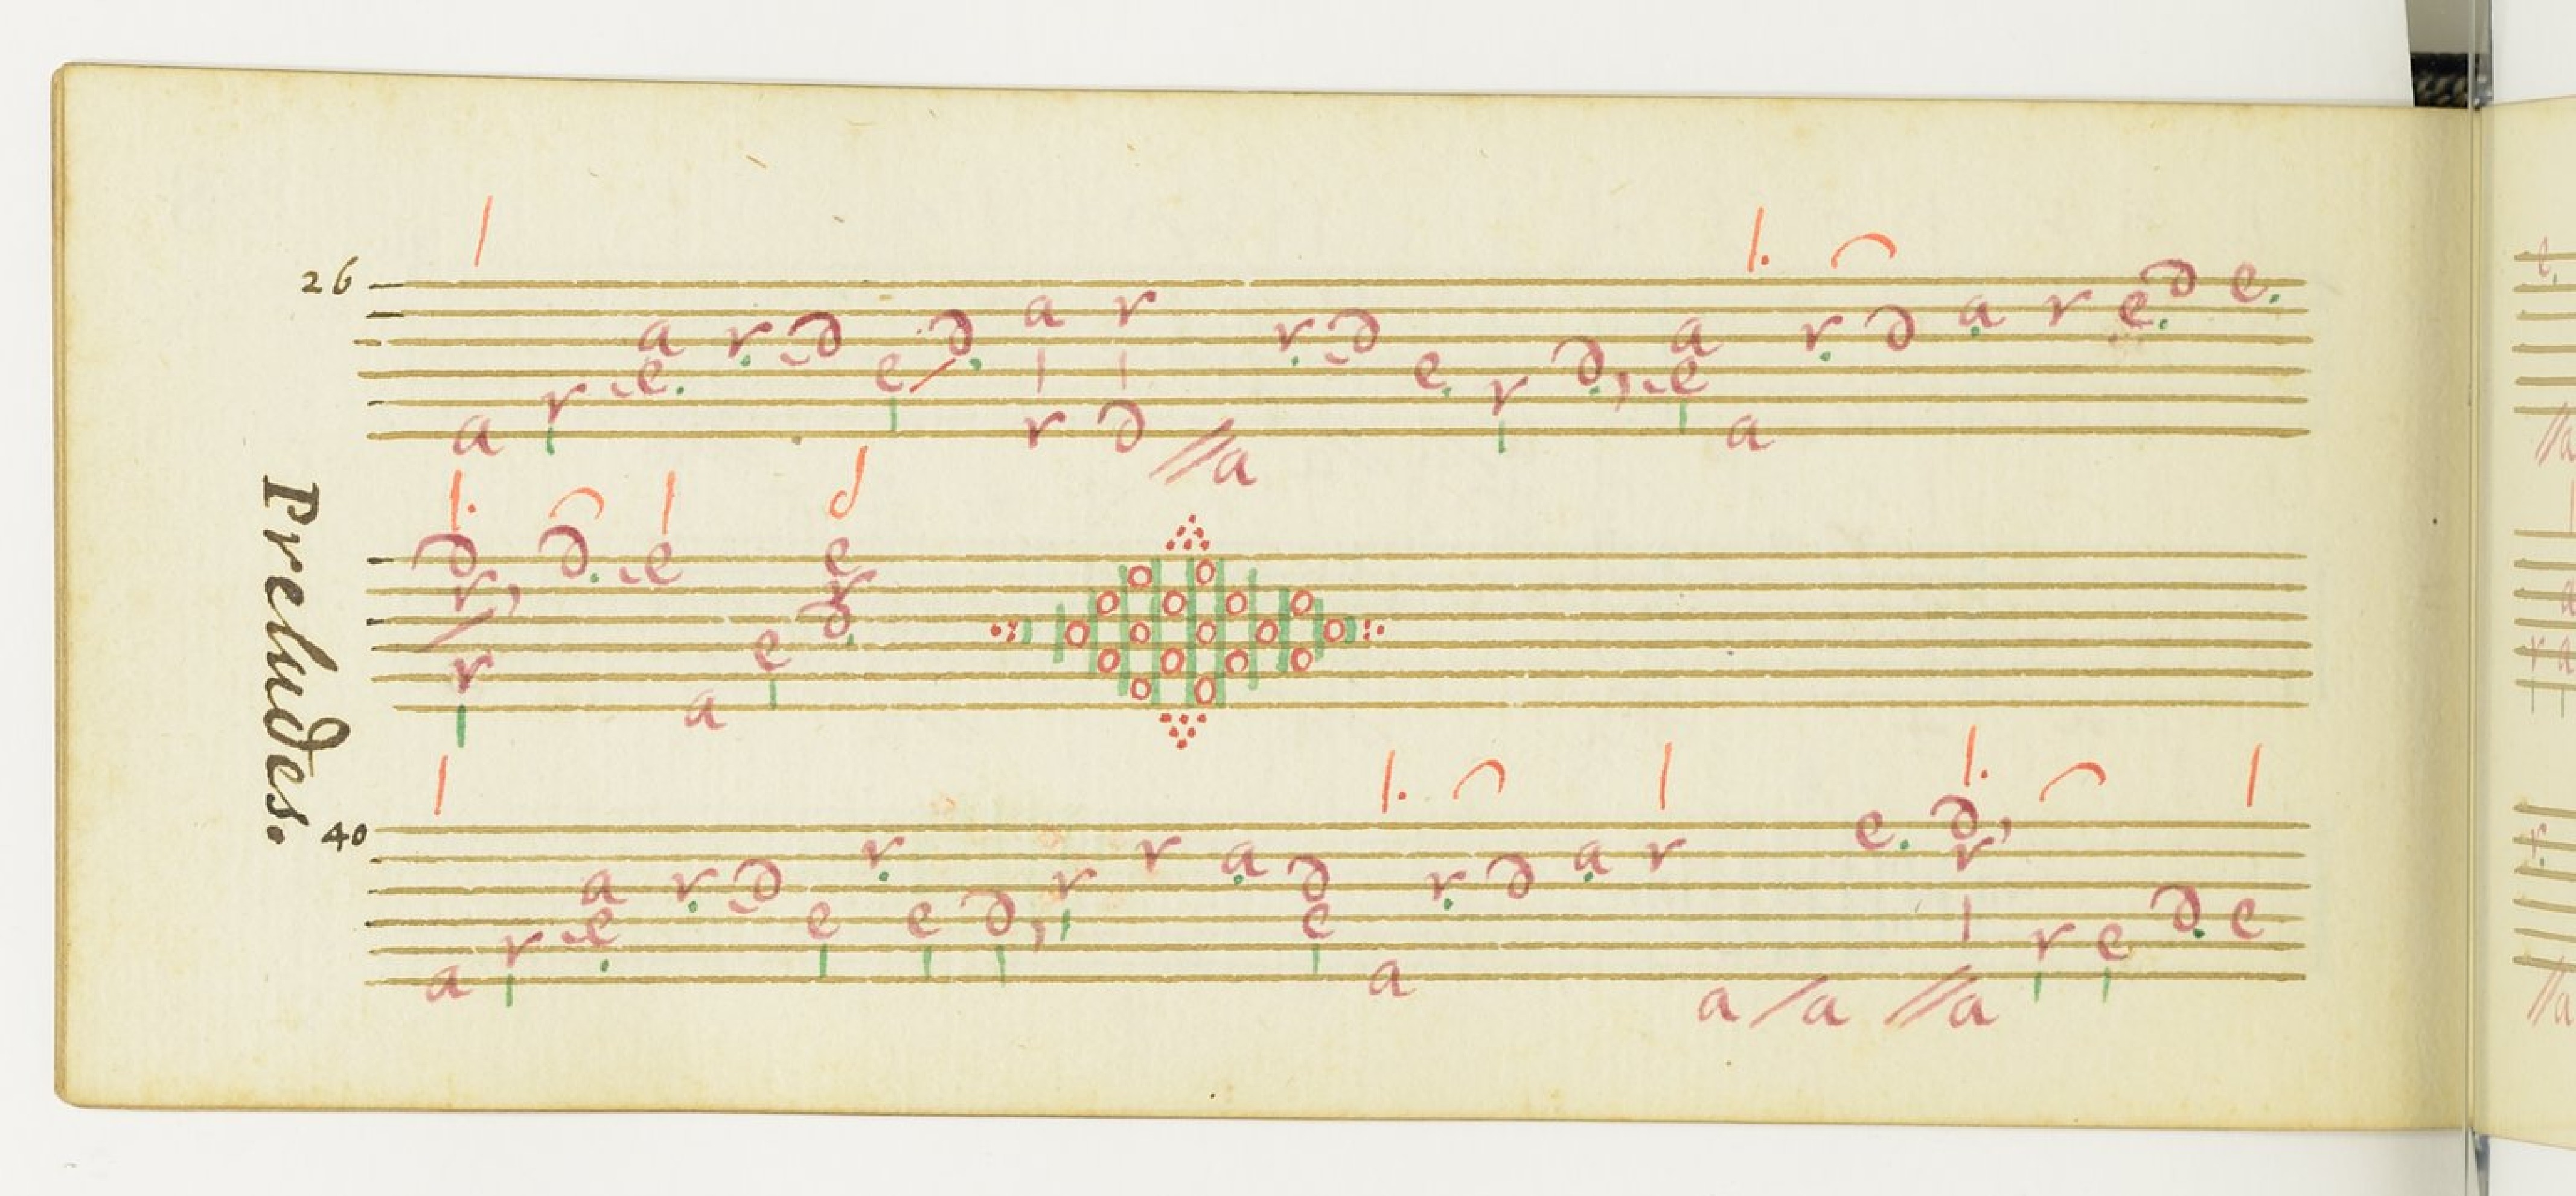 26
a r e a r d e d a r r d a r d e r d e a a r d a r e d e
Preludes.
d r r d e a e e r d
40
a r e a r d e r e d r r a d e a r d a r a a e d r a r e d e